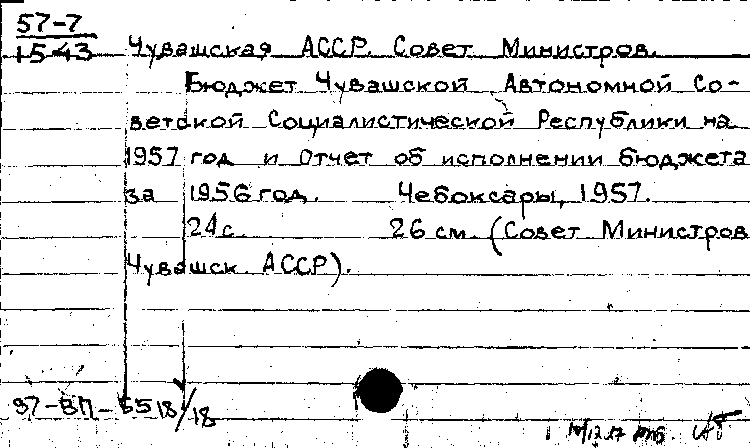 57-7
1543
Чувашская АССР. Совет Министров.
Бюджет Чувашской Автономной Со-
ветской Социалистической Республики на
1957 год и Отчет об исполнении бюджета
за 1956 год. Чебоксары, 1957.
24 с. 26 см. (Совет Министров
Чувашск. АССР).